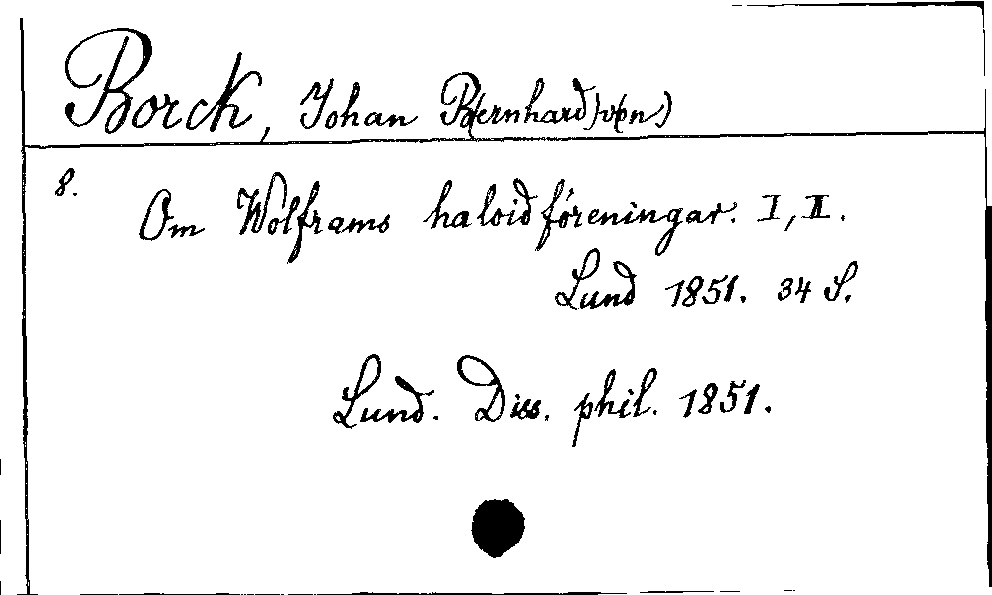 Borck, Johan B(ernhard) v(on)
8.
Om Wolframs haloidföreningar. I, II.
Lund 1851. 34 S.
Lund. Diss. phil. 1851.